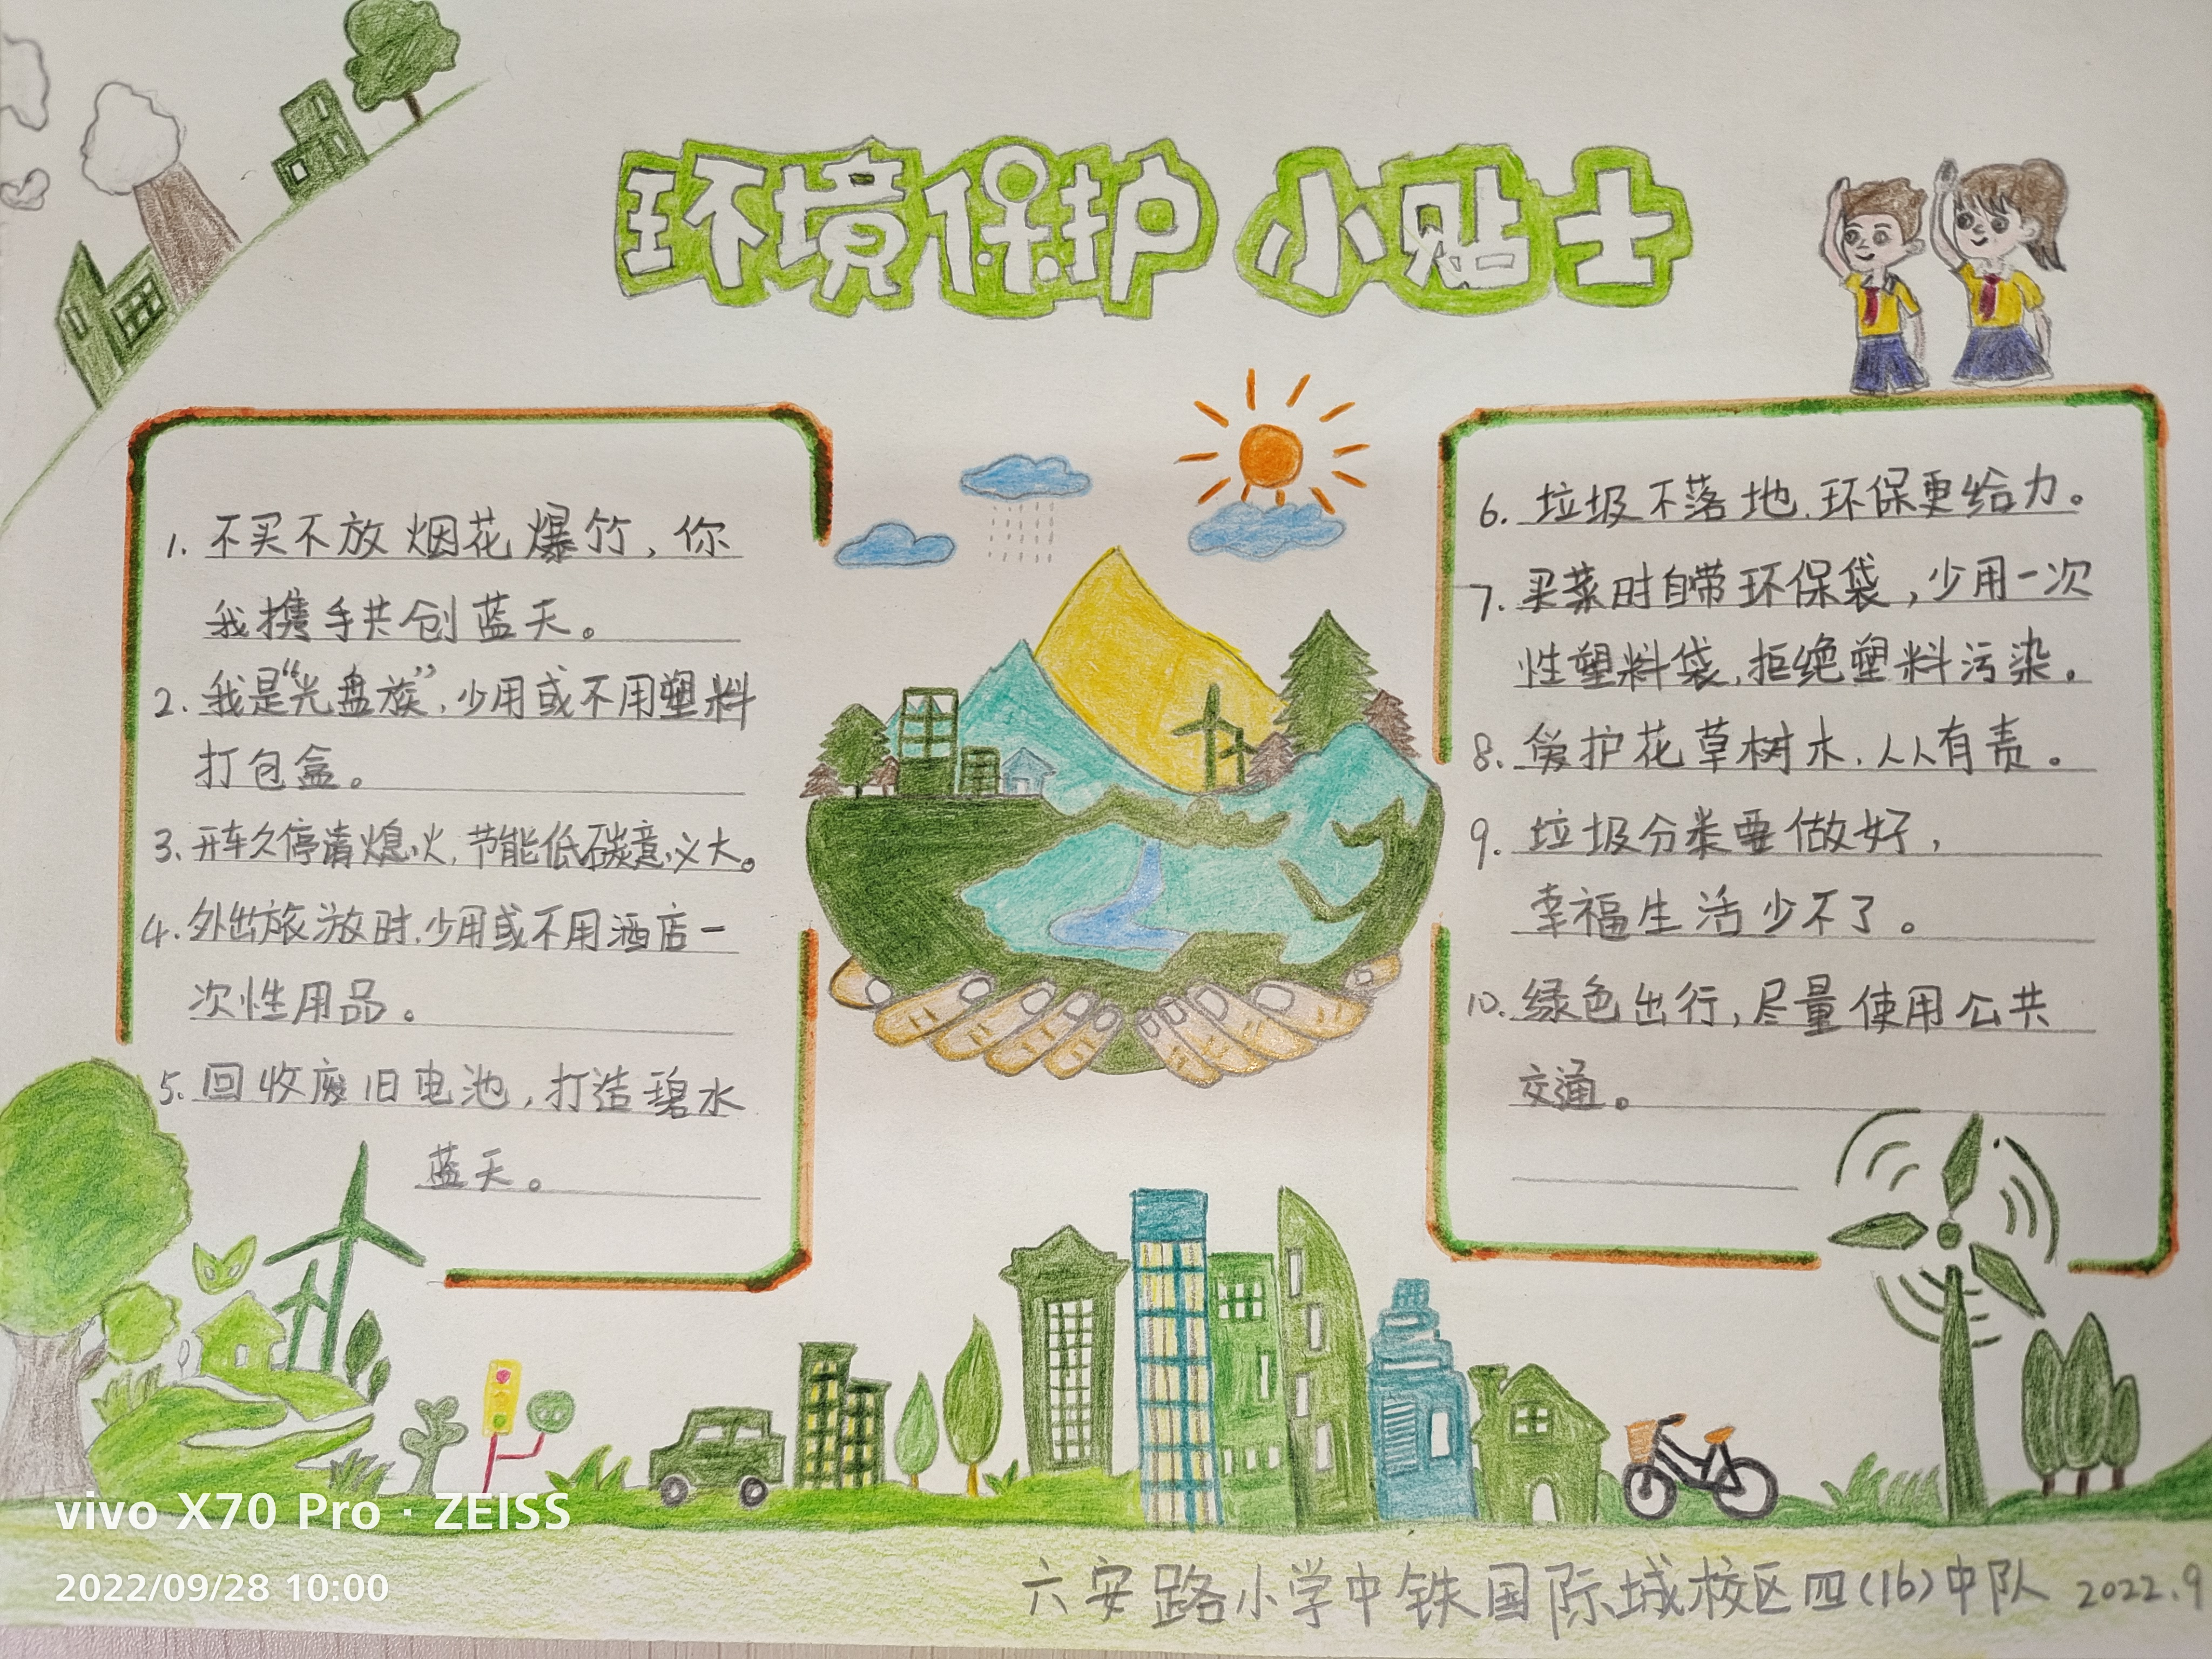 环境保护 小贴士
1. 不买不放烟花爆竹，你
我携手共创蓝天。
2. 我是“光盘族”，少用或不用塑料
打包盒。
3. 开车久停请熄火，节能低碳意义大。
4. 外出旅游时，少用或不用酒店一
次性用品。
5. 回收废旧电池，打造碧水
蓝天。
6. 垃圾不落地，环保更给力。
7. 买菜时自带环保袋，少用一次
性塑料袋，拒绝塑料污染。
8. 爱护花草树木，人人有责。
9. 垃圾分类要做好，
幸福生活少不了。
10. 绿色出行，尽量使用公共
交通。
vivo X70 Pro · ZEISS
2022/09/28 10:00
六安路小学中铁国际城校区四(16)中队 2022.9